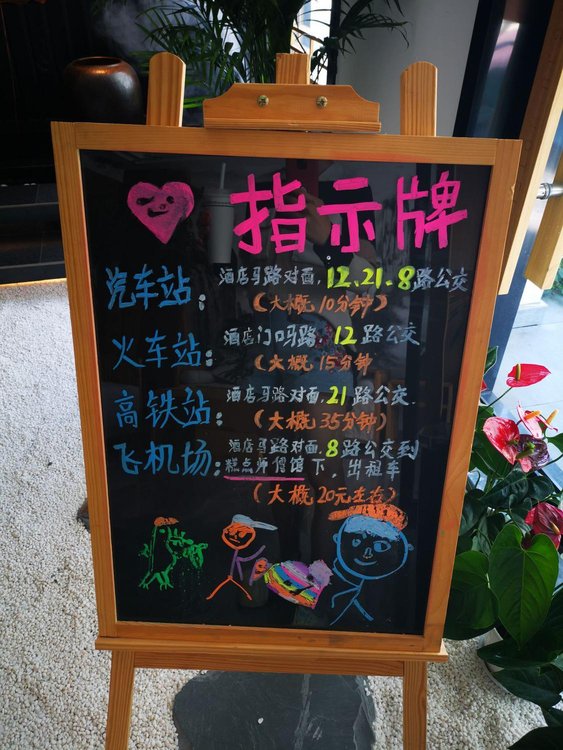 指示牌
汽车站: 酒店马路对面,12.21.8路公交
(大概10分钟)
火车站: 酒店门口马路,12路公交
(大概15分钟
高铁站: 酒店马路对面,21路公交.
(大概35分钟)
飞机场: 酒店马路对面,8路公交到
糕点师傅馆下,出租车
(大概20元左右)